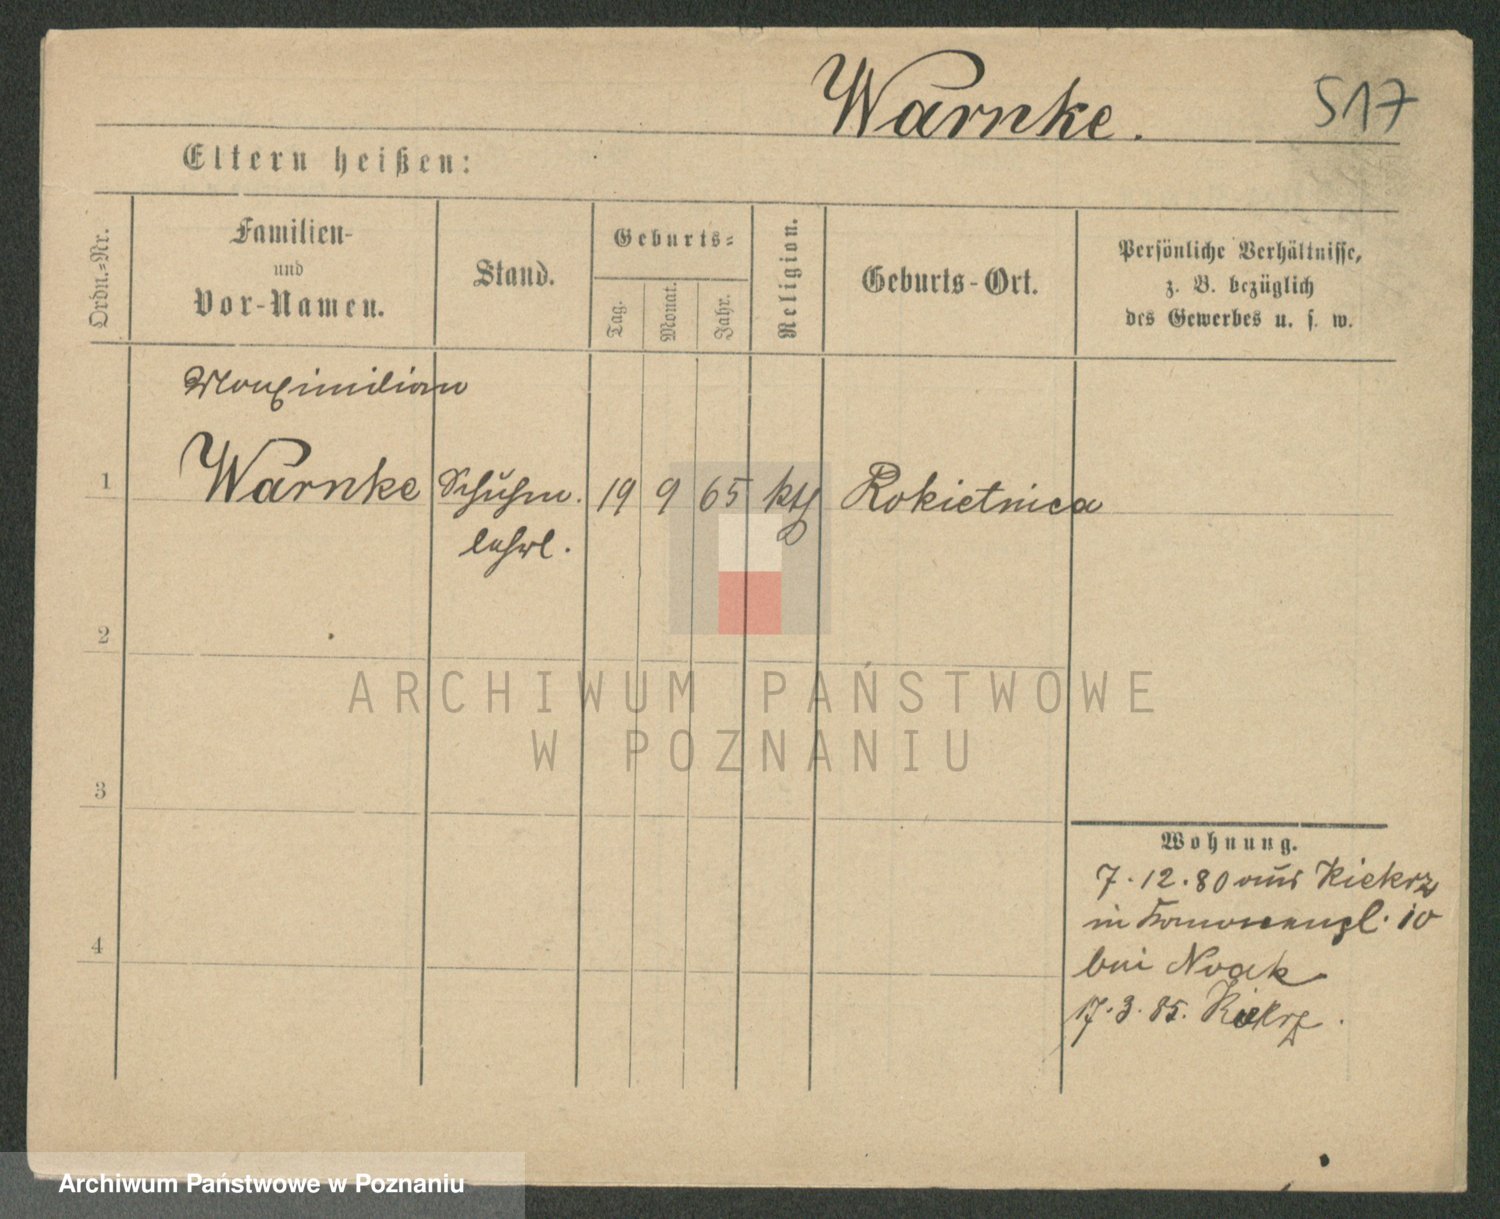 Warnke.
517
Eltern heißen:
Ordn.-Nr.
Familien-
und
Vor-Namen.
Stand.
Geburts-
Tag.
Monat.
Jahr.
Religion.
Geburts-Ort.
Persönliche Verhältnisse,
z. B. bezüglich
des Gewerbes u. s. w.
Maximilian
1 Warnke Schuhm. 19 9 65 kth Rokietnica
lehrl.
2
3
4
Wohnung.
7.12.80 aus Kiekrz
in 10
bei Noak
17.3.85. Kiekrz.
ARCHIWUM PAŃSTWOWE
W POZNANIU
Archiwum Państwowe w Poznaniu